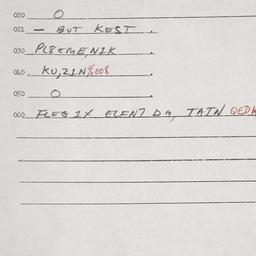 020 O
021 — BUT KEST .
030 PL8EME,N1K .
060 KU,21N%008 .
050 O .
060 FLEG 1X ELENT DM, TATN